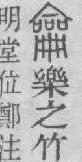 龠樂之竹
明堂位鄭注